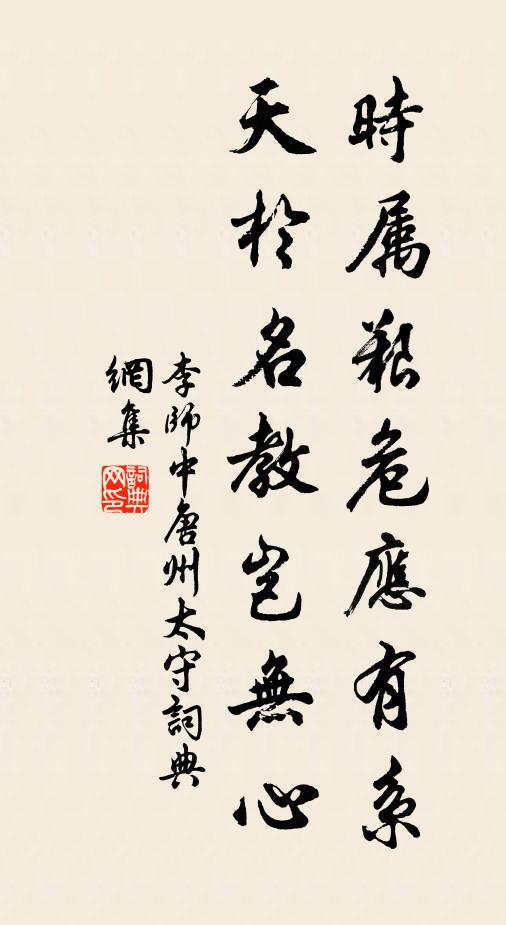 時属艱危應有系
天於名教豈無心
李師中唐州太守詞典
網集
詞典
网印